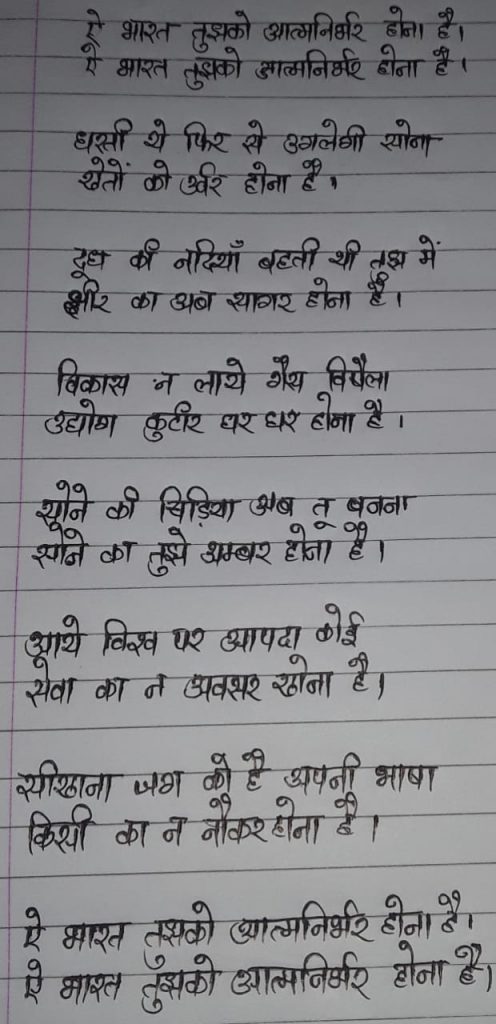 ऐ भारत तुझको आत्मनिर्भर होना है।
ऐ भारत तुझको आत्मनिर्भर होना है।
धरती ये फिर से उगलेगी सोना
खेतों को उर्वर होना है।
दूध की नदियाँ बहती थी तुझ में
क्षीर का अब सागर होना है।
विकास न लाये गैस विषैला
उद्योग कुटीर घर घर होना है।
सोने की चिड़िया अब तू बनना
सोने का तुझे अम्बर होना है।
आये विश्व पर आपदा कोई
सेवा का न अवसर खोना है।
सीखाना जग को है अपनी भाषा
किसी का न नौकर होना है।
ऐ भारत तुझको आत्मनिर्भर होना है।
ऐ भारत तुझको आत्मनिर्भर होना है।